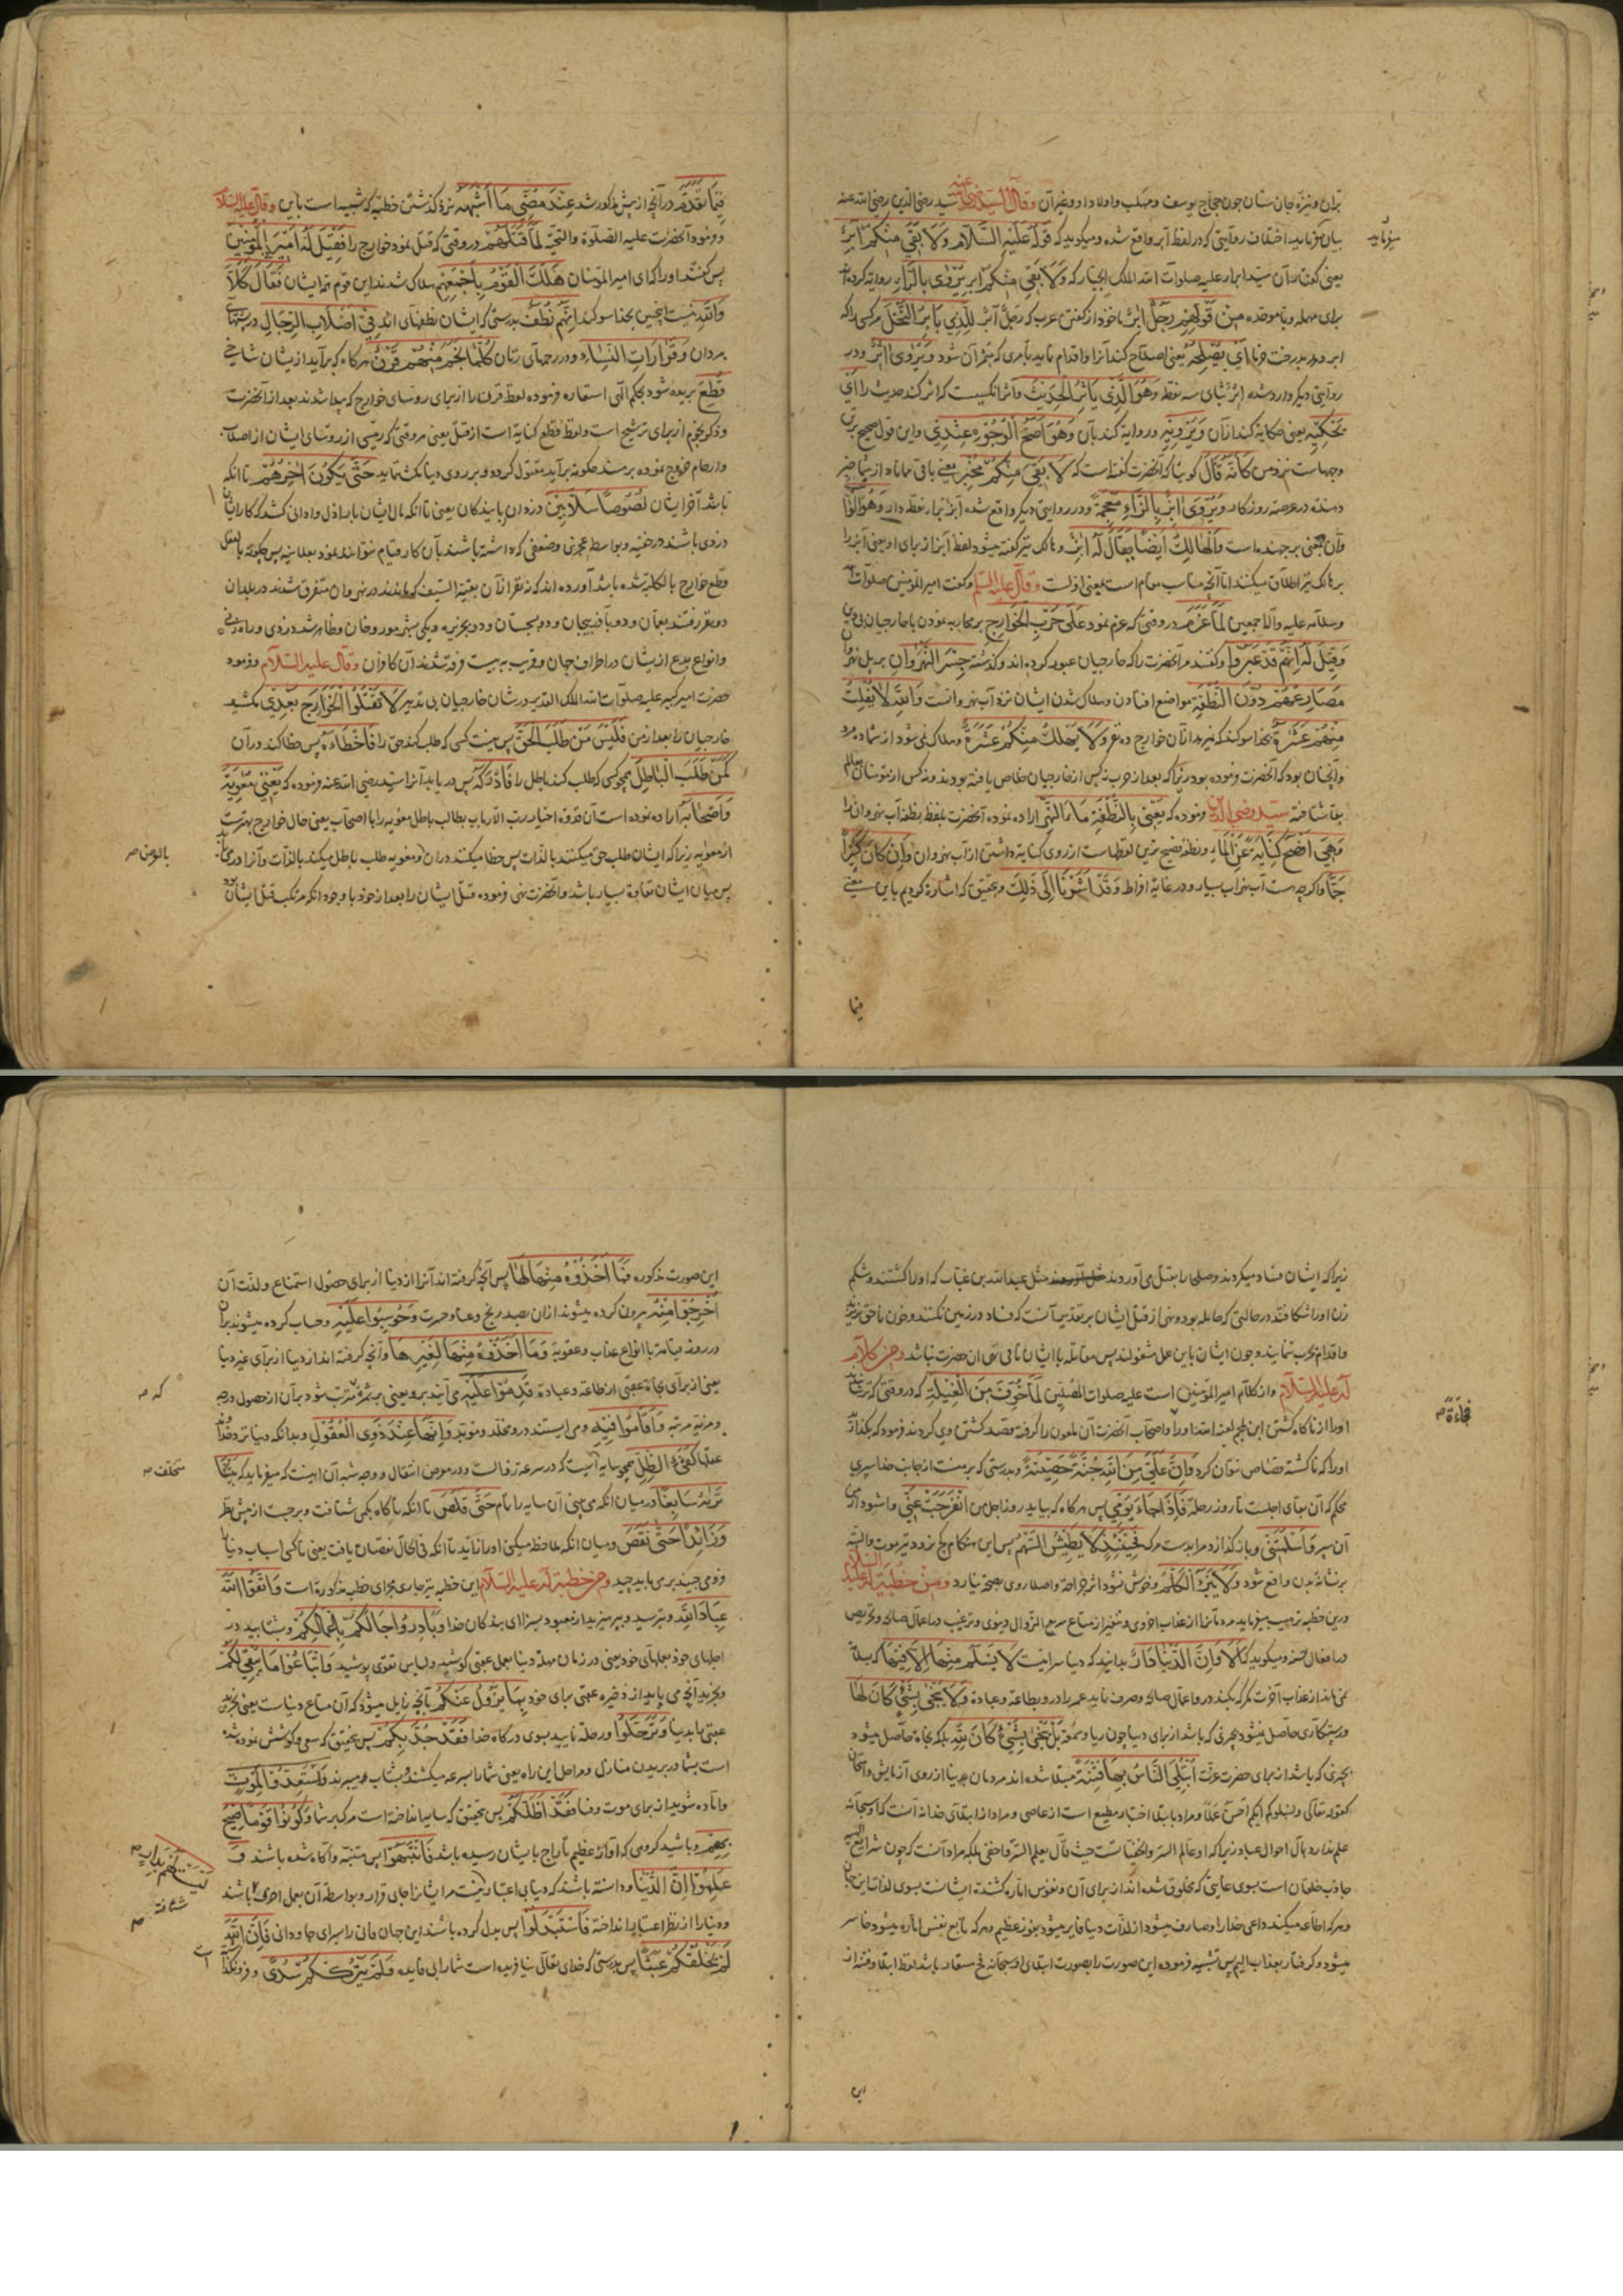 بران ونیزه جان ستان چون حجاج یوسف ومهلب واولاد او وغیرآن وقال السید رضی عنه سید رضی الدین رضی الله عنه
بیان میفرماید اختلاف روایتی که در لفظ آبر واقع شده ومیگوید که قوله علیه السلام ولا بقی منکم آبر
یعنی گفتار آن سید ابرار علیه صلوات الله الملک الجبار که ولا بقی منکم آبر یروی بالراء روایة کرده اند
برای مهمله وبا موحده من قولهم رجل ابر ماخوذ از گفتن عرب که رجل آبر للذی یابر النخل مر کسی را که
ابر دهد درخت خرما ای یصلحه یعنی اصلاح کند آنرا واقدام نماید بامری که مثمر آن شود ویروی اثر ودر
روایتی دیگر وارد شده اثر بثای سه نقطه وهو الذی یاثر الحدیث وآثر آنکسیست که اثر کند حدیث را ای
یحکیه یعنی حکایة کند از آن ویرویه وروایة کند بآن وهو اصح الوجوه عندی واین قول صحیح ترین
وجهاست نزد من کانه قال گوییا که آنحضرت گفته است که لا بقی منکم مخبر یعنی باقی نماناد از شما خبر
دهنده در عرصه روزگار ویروی ابز بالزاء معجمة ودر روایتی دیگر واقع شده آبز بزاء نقطه دار وهو الواثب
وآن بمعنی برجهنده است والهالک ایضا یقال له ابز وهالک نیز گفته میشود لفظ آبز از برای او یعنی آبز را
بر هالک نیز اطلاق میکنند اما آنچه مناسب مقام است بمعنی اولست وقال علیه السلم وگفت امیر المؤمنین صلوات الله
وسلامه علیه وآله اجمعین لما عزم در وقتی که عزم نمود علی حرب الخوارج بر محاربه نمودن با خارجیان بی دین
وقیل له انهم قد عبروا وگفتند مر آنحضرت را که خارجیان عبور کرده اند وگذشته جسر النهروان بر پل نهروان
مصارعهم دون النطفة مواضع افتادن وهلاک شدن ایشان نزد آب نهروانست والله لا یفلت
منهم عشرة بخدا سوگند که نرهد از آن خوارج ده نفر ولا یهلک منکم عشرة وهلاک نمی شود از شما ده مرد
وآنچنان بود که آنحضرت فرموده بود زیرا که بعد از حرب نه کس از خارجیان خلاص یافته بودند ونه کس از مؤمنان بعالم
بقا شتافته سید رضی الدین فرموده که یعنی بالنطفة ماء النهر اراده نموده آنحضرت بلفظ نطفه آب نهروان را
وهی افصح کنایة عن الماء ونطفه فصیح ترین لفظهاست از روی کنایة داشتن از آب نهروان وان کان کثیرا
جما واگرچه هست آب نهر آب بسیار ودر غایة افراط وقد اشرنا الی ذلک وبتحقیق که اشارة کردیم باین معنی
میفرماید
فیما
فیما تقدم در آنچه از پیش مذکور شد عند مضی ما اشبهه نزد گذشتن خطبه که شبیه است باین وقال علیه السلام
وفرمود آنحضرت علیه الصلوة والتحیة لما قتلهم در وقتی که قتل نمود خوارج را فقیل له یا امیر المؤمنین
پس گفتند او را که ای امیر المؤمنان هلک القوم باجمعهم هلاک شدند این قوم همه ایشان فقال کلا
والله نیست اینچنین بخدا سوگند انهم نطف بدرستی که ایشان نطفهای اند فی اصلاب الرجال در پشتهای
مردان وقرارات النساء ودر رحمهای زنان کلما نجم منهم قرن هرگاه که برآید از یشان شاخی
قطع بریده شود بحکم الهی استعاره فرموده لفظ قرن را از برای رؤسای خوارج که پیدا شدند بعد از آنحضرت
وذکر نجوم از برای ترشیح است ولفظ قطع کنایة است از قتل یعنی هر وقتی که رئیسی از رؤسای ایشان از اصلاب
وارحام خروج نموده بر مسند حکومة برآید مقتول گردد وبر روی دنیا نگشاید حتی یکون اخرهم تا آنکه
باشد آخر ایشان لصوصا سلابین دزدان رباینده کان یعنی تا آنکه مآل ایشان باراذل وادانی کشد که کار ایشان
دزدی باشد در خفیه وبواسطه عجزی وضعفی که داشته باشند بآن کار قیام نتوانند نمود بعلانیه پس چگونه بالفعل
قطع خوارج بالکلیه شده باشد آورده اند که نه نفر از آن بقیة السیف که ماندند در نهروان متفرق شدند در بلدان
دو نفر رفتند بعمان ودو بآذربیجان ودو بسجستان ودو بجزیره ویکی بتل مورون وظاهر شد دزدی وراه زنی
وانواع بدع از یشان در اطراف جهان وقریب به بیست فرقه شدند آن کافران وقال علیه السلام وفرمود
حضرت امیر کبیر علیه صلوات الله الملک القدیر در شان خارجیان بی تدبیر لا تقتلوا الخوارج بعدی مکشید
خارجیان را بعد از من فلیس من طلب الحق پس نیست کسی که طلب کند حق را فاخطاءه پس خطا کند در آن
کمن طلب الباطل همچو کسی که طلب کند باطل را فادرکه پس دریابد آنرا سید رضی الله عنه فرموده که یعنی معویة
واصحابه اراده نموده است آن قدوه اخیار رب الارباب بطالب باطل معویه را با اصحاب یعنی حال خوارج بهترست
از معویه زیرا که ایشان طلب حق میکنند بالذات پس خطا میکنند در آن ومعویه طلب باطل میکند بالذات وآنرا در می یابد
پس میان ایشان تفاوة بسیار باشد وآنحضرت نهی فرموده قتل ایشان را بعد از خود با وجود آنکه مرتکب قتل ایشان بود
بالعرض صح
زیرا که ایشان فساد میکردند وصلحا را بقتل می آوردند مثل عبد الله بن خباب که او را کشتند وشکم
زن او را شکافتند در حالتی که حامله بود ونهی از قتل ایشان بر تقدیر آنست که فساد در زمین نکنند وخون ناحق نریزند
واقدام بحرب ننمایند وچون ایشان باین عمل مشغولند پس مقاتله با ایشان نافی نهی آن حضرت نباشد ومن کلام
له علیه السلام واز کلام امیر المؤمنین است علیه صلوات المصلین لما خوف من الغیلة که در وقتی که ترسانیدند
او را از ناگاه کشتن ابن ملجم لعنه الله او را واصحاب آنحضرت آن ملعون را گرفته قصد کشتن وی کردند فرمود که بگذارید
او را که ناکشته قصاص نتوان کرد وان علی من الله جنة حصینة وبدرستی که بر منست از جانب خدا سپری
محکم که آن بقای اجلست تا روز رحلة فاذا جاء یومی پس هرگاه که بیاید روز اجل من انفرجت عنی واشود از من
آن سپر واسلمتنی وباز گذارد مرا بدست مرگ فحینئذ لا یطیش السهم پس این هنگام کج نرود تیر موت والبته
بر نشانه بدن واقع شود ولا یبرء الکلم وخوش نشود اثر جراحة واصلا روی بصحة نیارد ومن خطبة له علیه السلام
درین خطبه ترهیب میفرماید مردمانرا از عذاب اخروی وتنفیر از متاع سریع الزوال دنیوی وترغیب در اعمال صالحه وتحریص
در افعال حسنه ومیگوید که الا وان الدنیا دار بدانید که دنیا سرائیست لا یسلم منها الا فیها که سلامة
نمی یابد از عذاب آخرت مگر که بکند درو اعمال صالحه وصرف نماید عمر را درو بطاعة وعبادة ولا ینجی بشئ کان لها
ورستگاری حاصل میشود بچیزی که باشد از برای دنیا چون ریا وسمعة بل ینجی بشئ کان لله بلکه نجاة حاصل میشود
بچیزی که باشد از برای حضرت عزت ابتلی الناس بها فتنة مبتلا شده اند مردمان بدنیا از روی آزمایش وامتحان
کقوله تعالی ولیبلوکم ایکم احسن عملا ومراد بابتلا اختبار مطیع است از عاصی ومراد از ابتلای خدا نه آنست که او سبحانه
علم ندارد بمآل احوال عباد زیرا که او عالم السر والخفیاتست حیث قال یعلم السر واخفی بلکه مراد آنست که چون شرایع الهیه
جاذب خلقان است بسوی غایتی که مخلوق شده اند از برای آن ونفوس اماره کشنده ایشانست بسوی لذات این جهان
وهر که اطاعه میکند داعی خدا را وصارف میشود از لذات دنیا فایز میشود بفوز عظیم وهر که تابع نفس اماره میشود خاسر
میشود وگرفتار بعذاب الیم پس تشبیه فرموده این صورت را بصورت ابتلای او سبحانه پس مستعار باشد لفظ ابتلا وفتنه از
فجاءة صح
این
این صورت مذکوره فما اخذوه منها لها پس آنچه گرفته اند آنرا از دنیا از برای حصول استمتاع ولذت آن
اخرجوا منه بیرون کرده میشوند از آن بصد رنج وعنا وحسرت وحوسبوا علیه وحساب کرده میشوند بر آن
در روز قیامة با انواع عذاب وعقوبة وما اخذوه منها لغیرها وآنچه گرفته اند از دنیا از برای غیر دنیا
یعنی از برای نجاة عقبی از طاعة وعبادة قدموا علیه می آیند برو یعنی بر ثمره مترتب شود بر آن از حصول درجه
ومزید مرتبه واقاموا فیه ومی ایستند درو مخلد ومؤبد وانها عند ذوی العقول وبدانکه دنیا نزد خداوندان
عقلها کفئ الظل همچو سایه ایست که در سرعة زوالست ودر معرض انتقال ووجه شبه آن اینست که میفرماید که بینا
تراه سابغا در میان آنکه می بینی آن سایه را تام حتی قلص تا آنکه ناگاه بکمی شتافت وبرجست از پیش نظر
وزائدا حتی نقص ومیان آنکه ملاحظه میکنی او را زاید تا آنکه فی الحال نقصان یافت یعنی ناگهی اسباب دنیا
ودمی چند بر می باید چید ومن خطبة له علیه السلام این خطبه نیز جاری مجرای خطبه مذکورة است واتقوا الله
عباد الله وبترسید وبپرهیزید از معبود بسزا ای بنده کان خدا وبادروا اجالکم باعمالکم وبشتابید در
اجلهای خود بعملهای خود یعنی در زمان مهلة دنیا بعمل عقبی کوشید ولباس تقوی پوشید وابتاعوا ما یبقی لکم
وبخرید آنچه می پاید از ذخیره عقبی برای خود بما یزول عنکم بآنچه زایل میشود که آن متاع دنیاست یعنی بخرید
عقبی را بدنیا وترحلوا ورحلة نمایید بسوی درگاه خدا فقد جد بکم پس بتحقیق که سعی وکوشش نموده شده
است بشما در بریدن منازل ومراحل این راه یعنی شما را بسرعة میکشند وبشتاب میبرند واستعدوا للموت
وآماده شوید از برای موت وفنا فقد اظلکم پس بتحقیق که سایه انداخته است مرگ بر شما وکونوا قوما صیح
بهم وباشید گروهی که آوازه عظیم تاراج بایشان رسیده باشد فانتبهوا پس متنبه وآگاه شده باشند و
علموا ان الدنیا ودانسته باشند که دنیای بی اعتبار نیست مر ایشان را جای قرار وبواسطه آن بعمل اخروی باشند
ودنیا را از نظر اعتبار انداخته فاستبدلوا پس بدل کرده باشند این جهان فانی را بسرای جاودانی فان الله
لم یخلقکم عبثا پس بدرستی که خدای تعالی نیافریده است شما را بی فایده ولم یترککم سدی وفرو نگذاشت
که صح
متخلف صح
لیست لهم بدار صح
شتافته صح